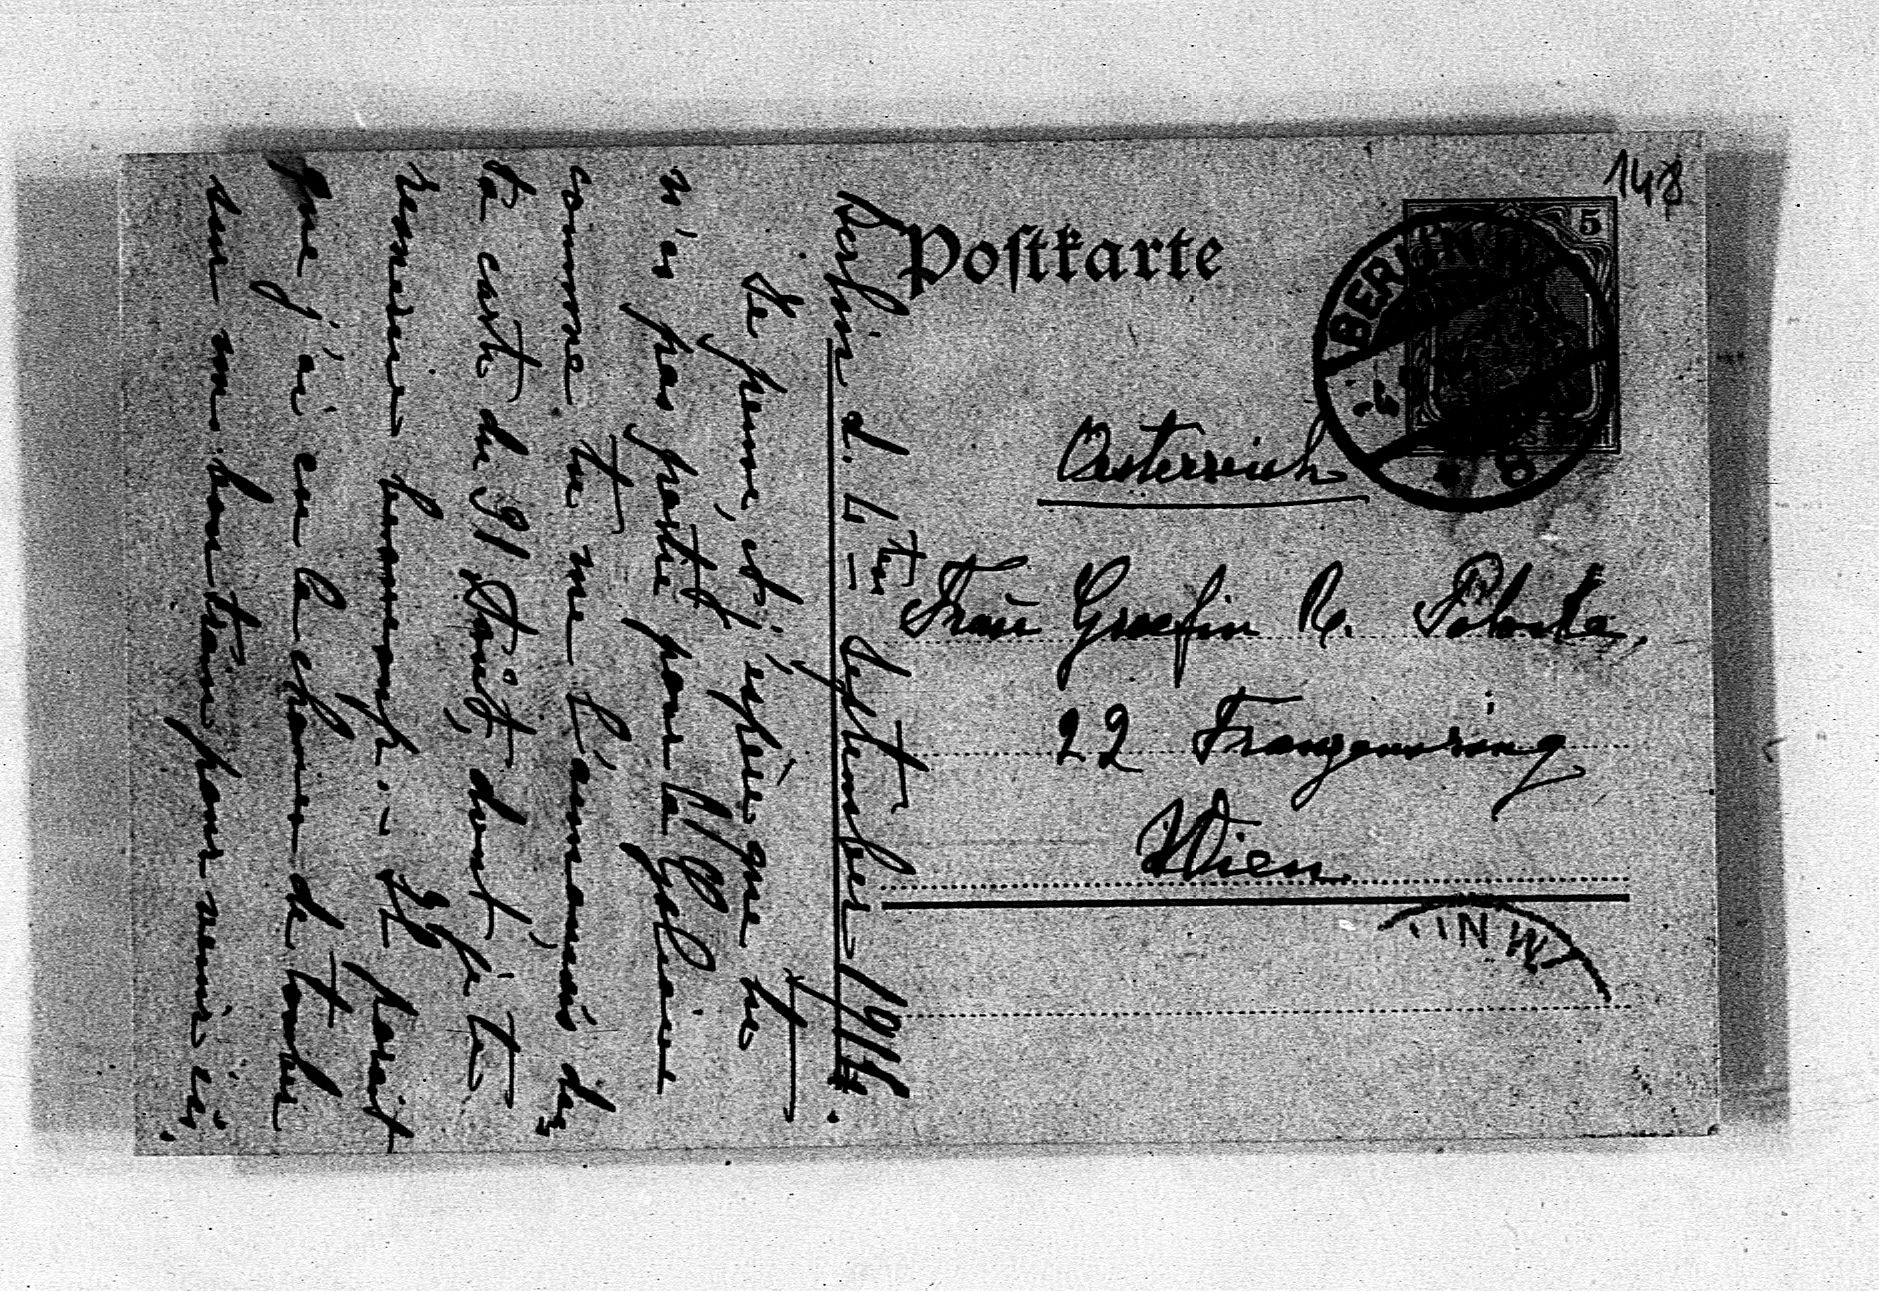 148
5
BERLIN W
Postkarte
Oesterreich
Frau Graefin R. Potocka,
22 Franzensring
Wien
Berlin d. 4ten September 1914.
Je pense, et j'espère que tu
n'es pas partie pour la Galicie
comme tu me l'annonçais dans
ta carte du 31 Août, dont je te
remercie beaucoup. – Il paraît
que j'ai eu la chance de tomber
sur un bon train pour venir ici.